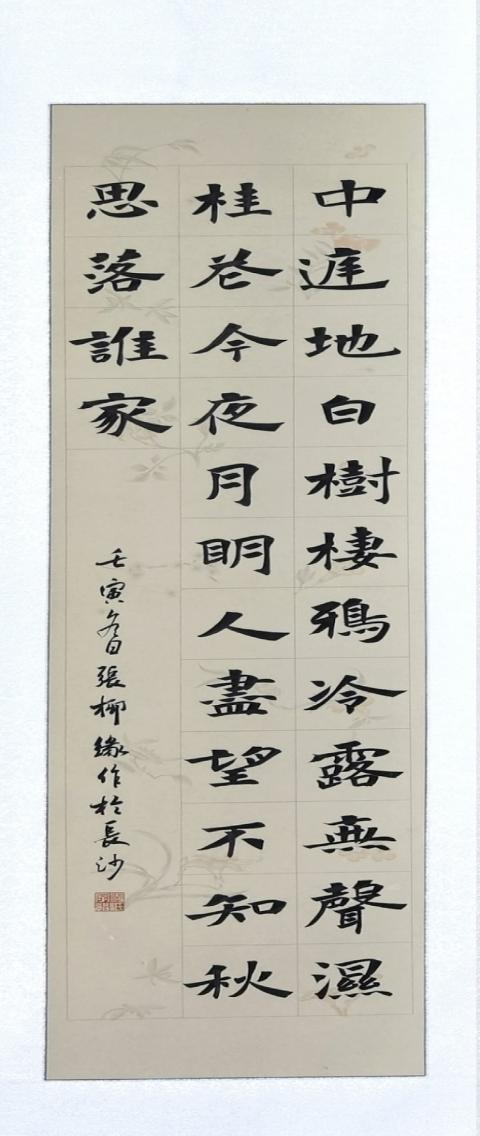 中庭地白樹棲鴉冷露無聲濕
桂花今夜月明人盡望不知秋
思落誰家
壬寅冬日張柳緣作於長沙